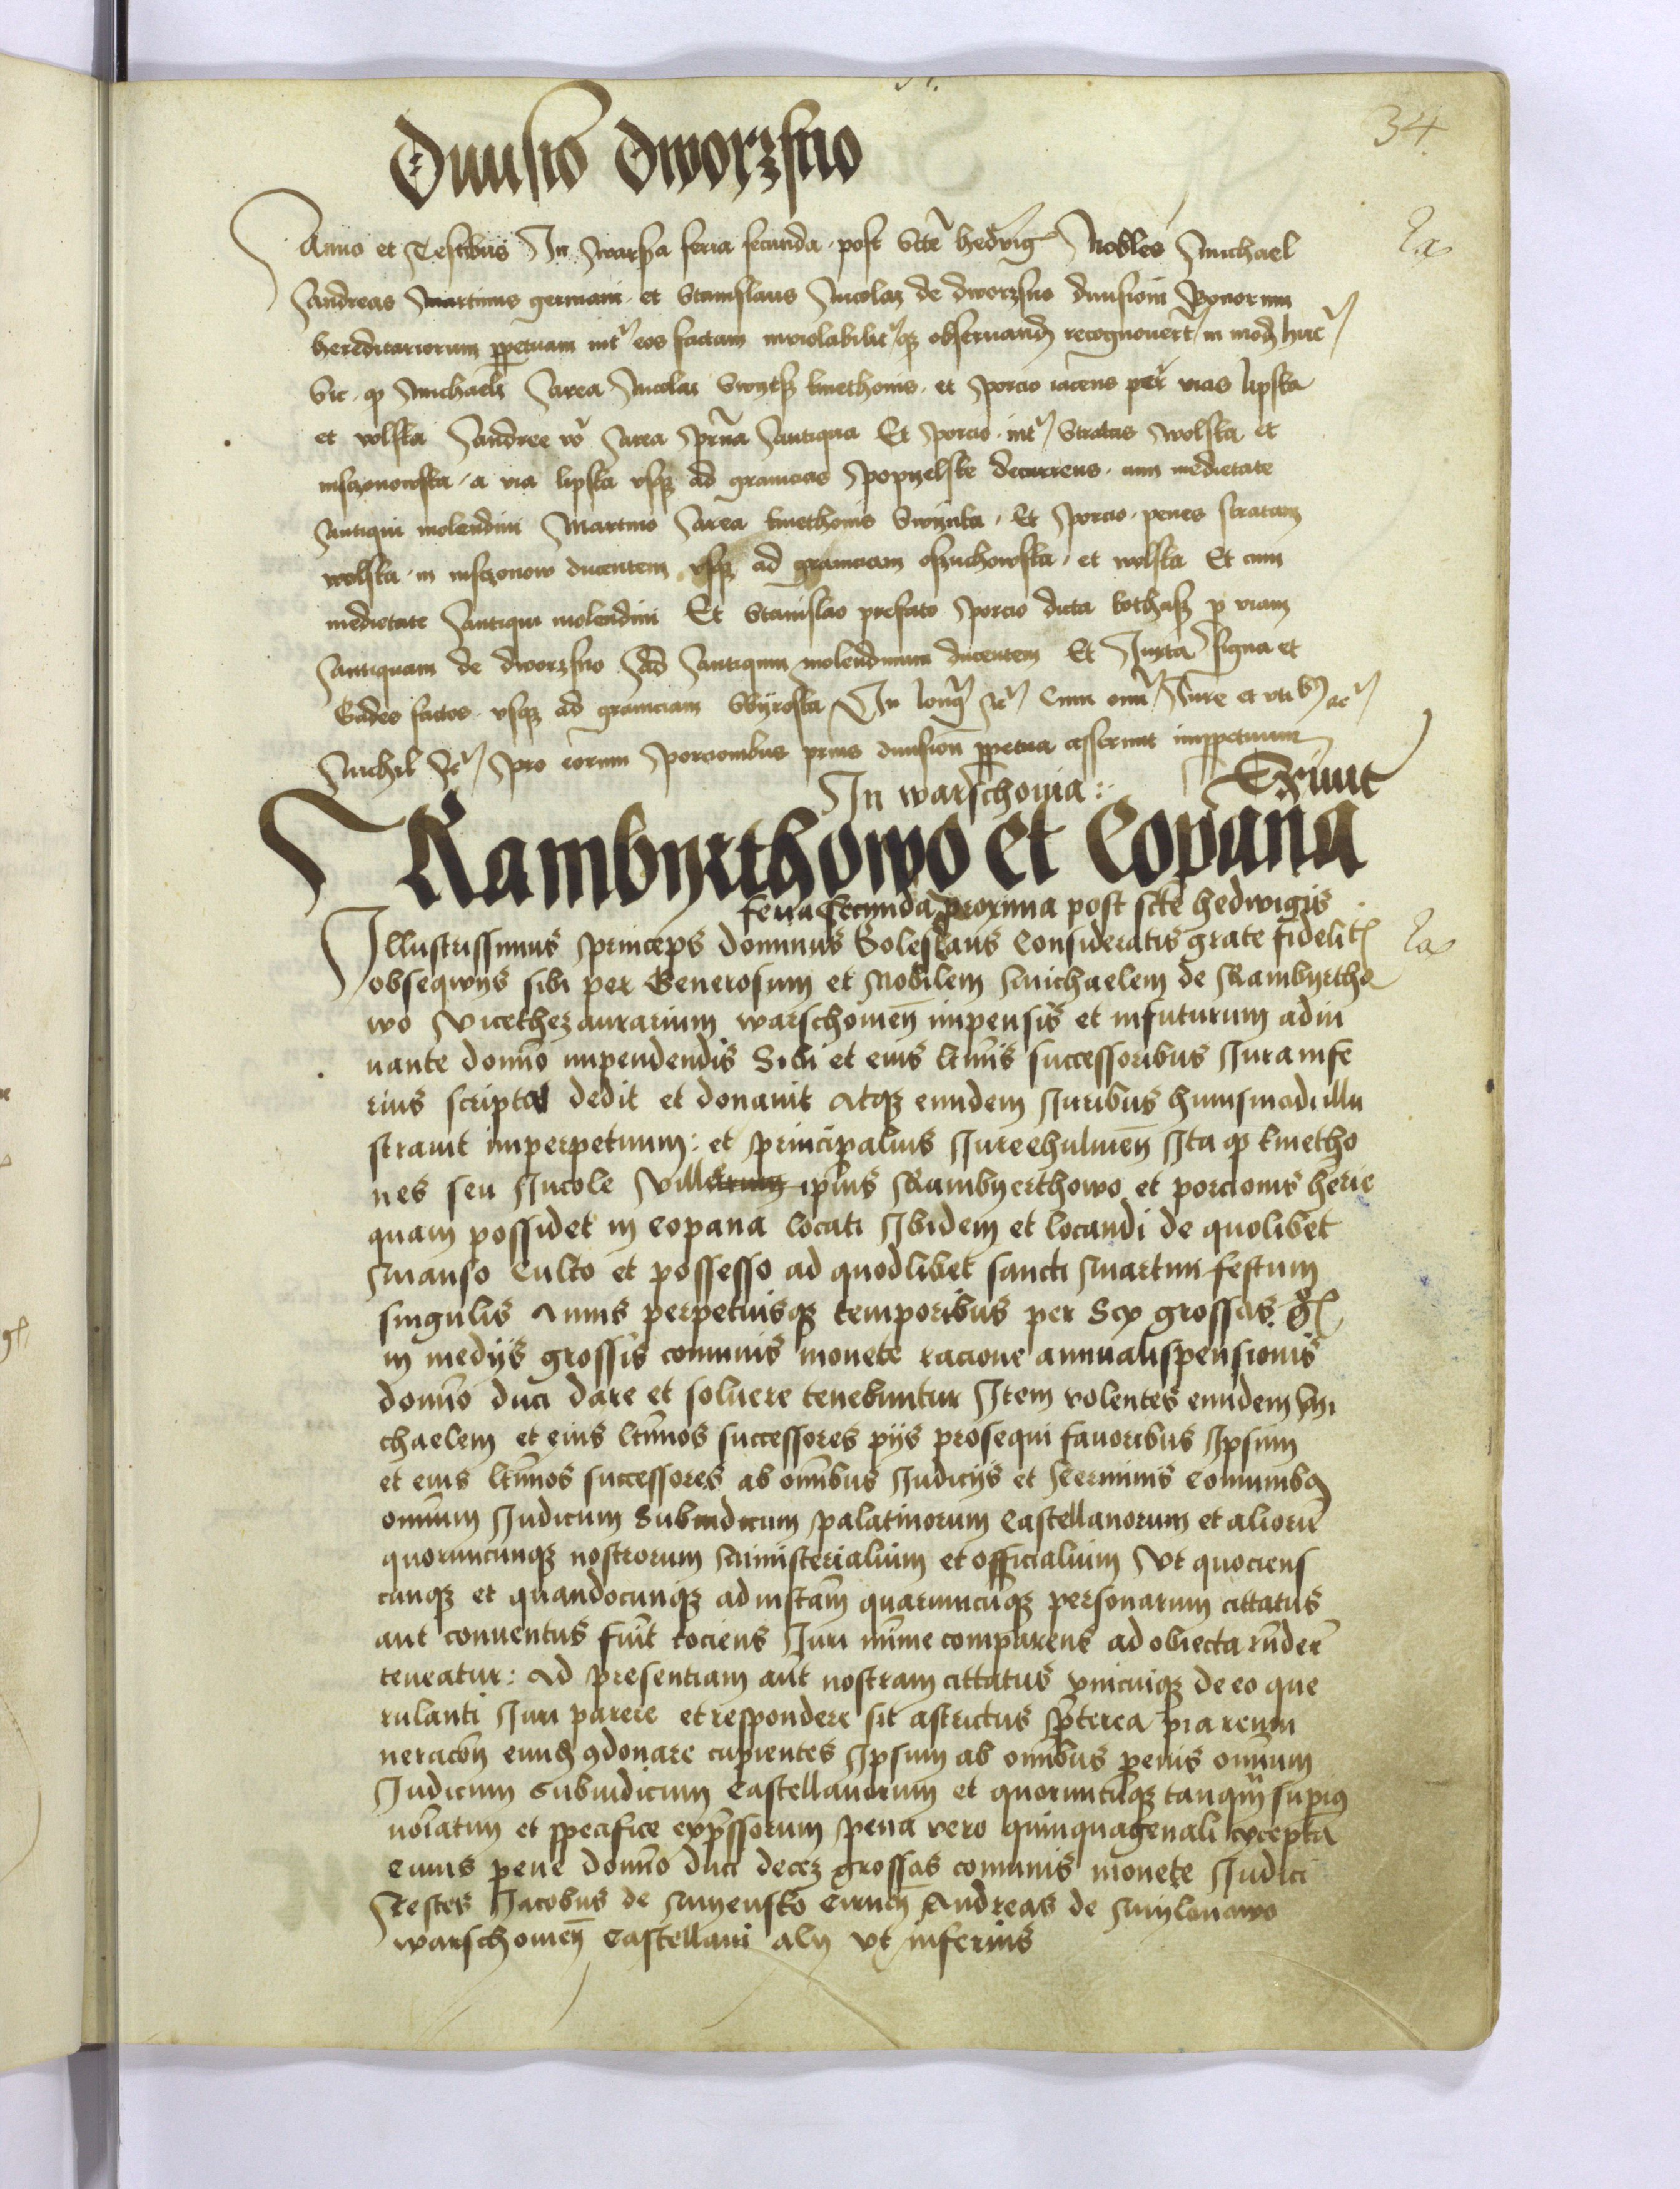 34
Diuisio Dworzsno
Anno et Testibus In Warscha feria secunda post scte hedvig Nobles Michael
Andreas Martinus germani et Stanislaus Nicolay de dworzsno diuisionem Bonorum
hereditariorum ppetuam int eos factam inuiolabilitque obseruand recognouert in mod hunc
Sic q Michaeli Area Nicolai kmethonis et porcio iacens per vias lipska
et wolska Andree vero Area prna Antiqua Et porcio int Stratas wolska et
msczonowska a via lipska vsq ad granicias Popyelske decurrens cum medietate
Antiqui molendini Martino Area kmethonis Swynka Et porcio penes stratam
wolska in msczonow ducentem vsq ad graniciam oszuchowska et wolska Et cum
medietate Antiqui molendini Et Stanislao prefato porcio dicta p viam
Antiquam de dworzsno Ad Antiquum molendinum ducentem Et Juxta signa et
Gades factos vsq ad graniciam In long etc Cum omni Jure et ac
Nichil etc pro eorum porcionibus prius diuision ppetua cesserunt imppetuum
In warschouia: Exiuit
Rambyrthowo et Copana
feria secunda proxima post scte hedwigis
Illustrissimus princeps dominus Boleslaus Consideratis grate fidelit
obsequijs sibi per Generosum et Nobilem Michaelem de Rambyrtho
wo vicethezaurarium warschouien impensis et infuturum adiu
uante domno impendendis Sibi et eius ltimis successoribus Jura infe
rius scripta dedit et donauit Atq eundem Juribus huiusmodi illu
strauit imperpetuum: et principalius Jure chulmen Ita q kmetho
nes seu Incole ville ipius Rambyerthowo et porcionis herie
quam possidet in Copana locati Ibidem et locandi de quolibet
Manso Culto et possesso ad quodlibet sancti Martini festum
singulis Annis perpetuisq temporibus per Sex grossos
in medijs grossis comunis monete racione annualis pensionis
domno duci dare et soluere tenebuntur Item volentes eundem Mi
chaelem et eius ltimos successores pijs prosequi fauoribus Ipsum
et eius ltimos successores ab omnibus Judicijs et Terminis Comunibq
omnium Judicum Subiudicum palatinorum Castellanorum et alioru
quorumcunq nostrorum Ministerialium et officialium Vt quociens
cunq et quandocunq ad instam quarumcuq personarum cittatus
aut conuentus fuit tociens Juri mime comparens ad obiecta rnder
teneatur: Ad presentiam aut nostram cittatus vnicuiq de eo que
rulanti Juri parere et respondere sit astrictus pterea pia remu
neracon eund 9donare cupientes Ipsum ab omibus penis omnium
Judicum Subiudicum Castellanorum et quoruncuq tanqm supius
noiatim et specifice expssorum pena vero quinquagenali excepta
Cuius pene domno duci decez grossos comunis monete Judici
Testes Jacobus de Mnyensko Andreas de Mnylonowo
warschouien Castellani alij vt inferius